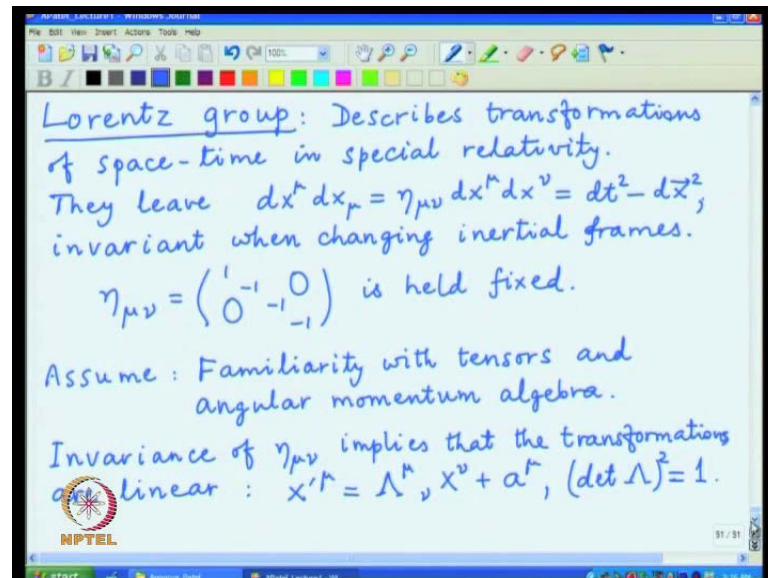 APatel_Lecture1 - Windows Journal
File Edit View Insert Actions Tools Help
100%
B I
Lorentz group: Describes transformations
of space-time in special relativity.
They leave dx^μ dx_μ = η_μν dx^μ dx^ν = dt² - dx⃗²,
invariant when changing inertial frames.
η_μν = ( 1 -1 0
0 -1 -1 ) is held fixed.
Assume: Familiarity with tensors and
angular momentum algebra.
Invariance of η_μν implies that the transformations
are linear: x'^μ = Λ^μ_ν x^ν + a^μ, (det Λ)² = 1.
NPTEL
91/91
start